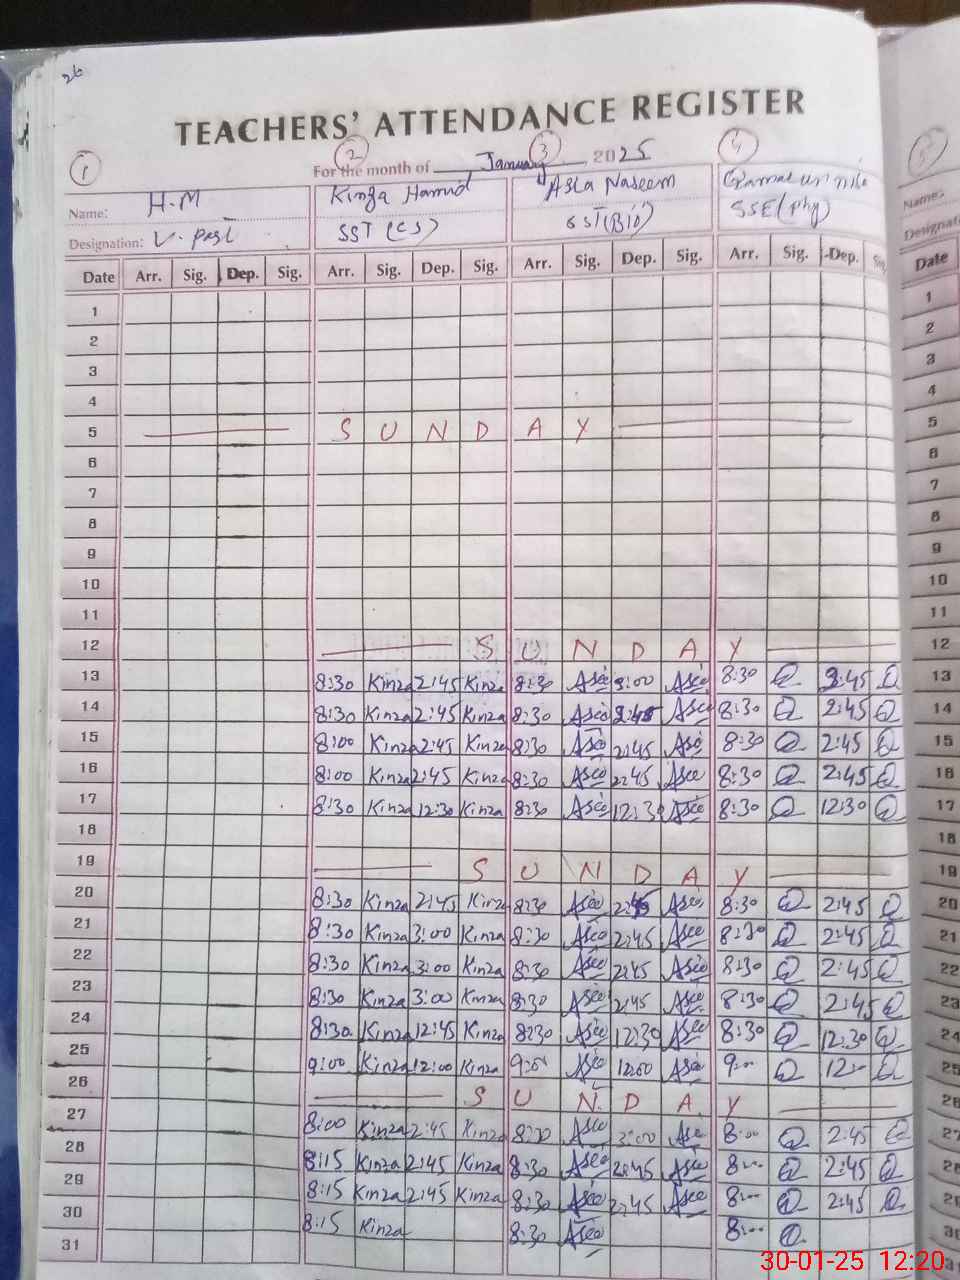 26
TEACHERS' ATTENDANCE REGISTER
1 2 3 4 5
For the month of January 2025
Name: H.M Kinza Hamid Asia Naseem
Designation: SST (CS) SST (Bio) SSE (Phy)
Date Arr. Sig. Dep. Sig. Arr. Sig. Dep. Sig. Arr. Sig. Dep. Sig. Arr. Sig. Dep. Sig. Date
1 1
2 2
3 3
4 4
5 S U N D A Y 5
6 6
7 7
8 8
9 9
10 10
11 11
12 S U N D A Y 12
13 8:30 Kinza 2:45 Kinza 8:30 3:00 8:30 2:45 13
14 8:30 Kinza 2:45 Kinza 8:30 2:45 8:30 2:45 14
15 8:00 Kinza 2:45 Kinza 8:30 2:45 8:30 2:45 15
16 8:00 Kinza 2:45 Kinza 8:30 2:45 8:30 2:45 16
17 8:30 Kinza 12:30 Kinza 8:30 12:30 8:30 12:30 17
18 18
19 S U N D A Y 19
20 8:30 Kinza 2:45 Kinza 8:30 2:45 8:30 2:45 20
21 8:30 Kinza 3:00 Kinza 8:30 2:45 8:30 2:45 21
22 8:30 Kinza 3:00 Kinza 8:30 2:45 8:30 2:45 22
23 8:30 Kinza 3:00 Kinza 8:30 2:45 8:30 2:45 23
24 8:30 Kinza 12:45 Kinza 8:30 12:30 8:30 12:30 24
25 9:00 Kinza 12:00 Kinza 9:00 12:00 9:00 12:00 25
26 S U N D A Y 26
27 8:00 Kinza 2:45 Kinza 8:30 3:00 8:00 2:45 27
28 8:15 Kinza 2:45 Kinza 8:30 2:45 8:00 2:45 28
29 8:15 Kinza 2:45 Kinza 8:30 2:45 8:00 2:45 29
30 8:15 Kinza 8:30 8:00 30
31
30-01-25 12:20